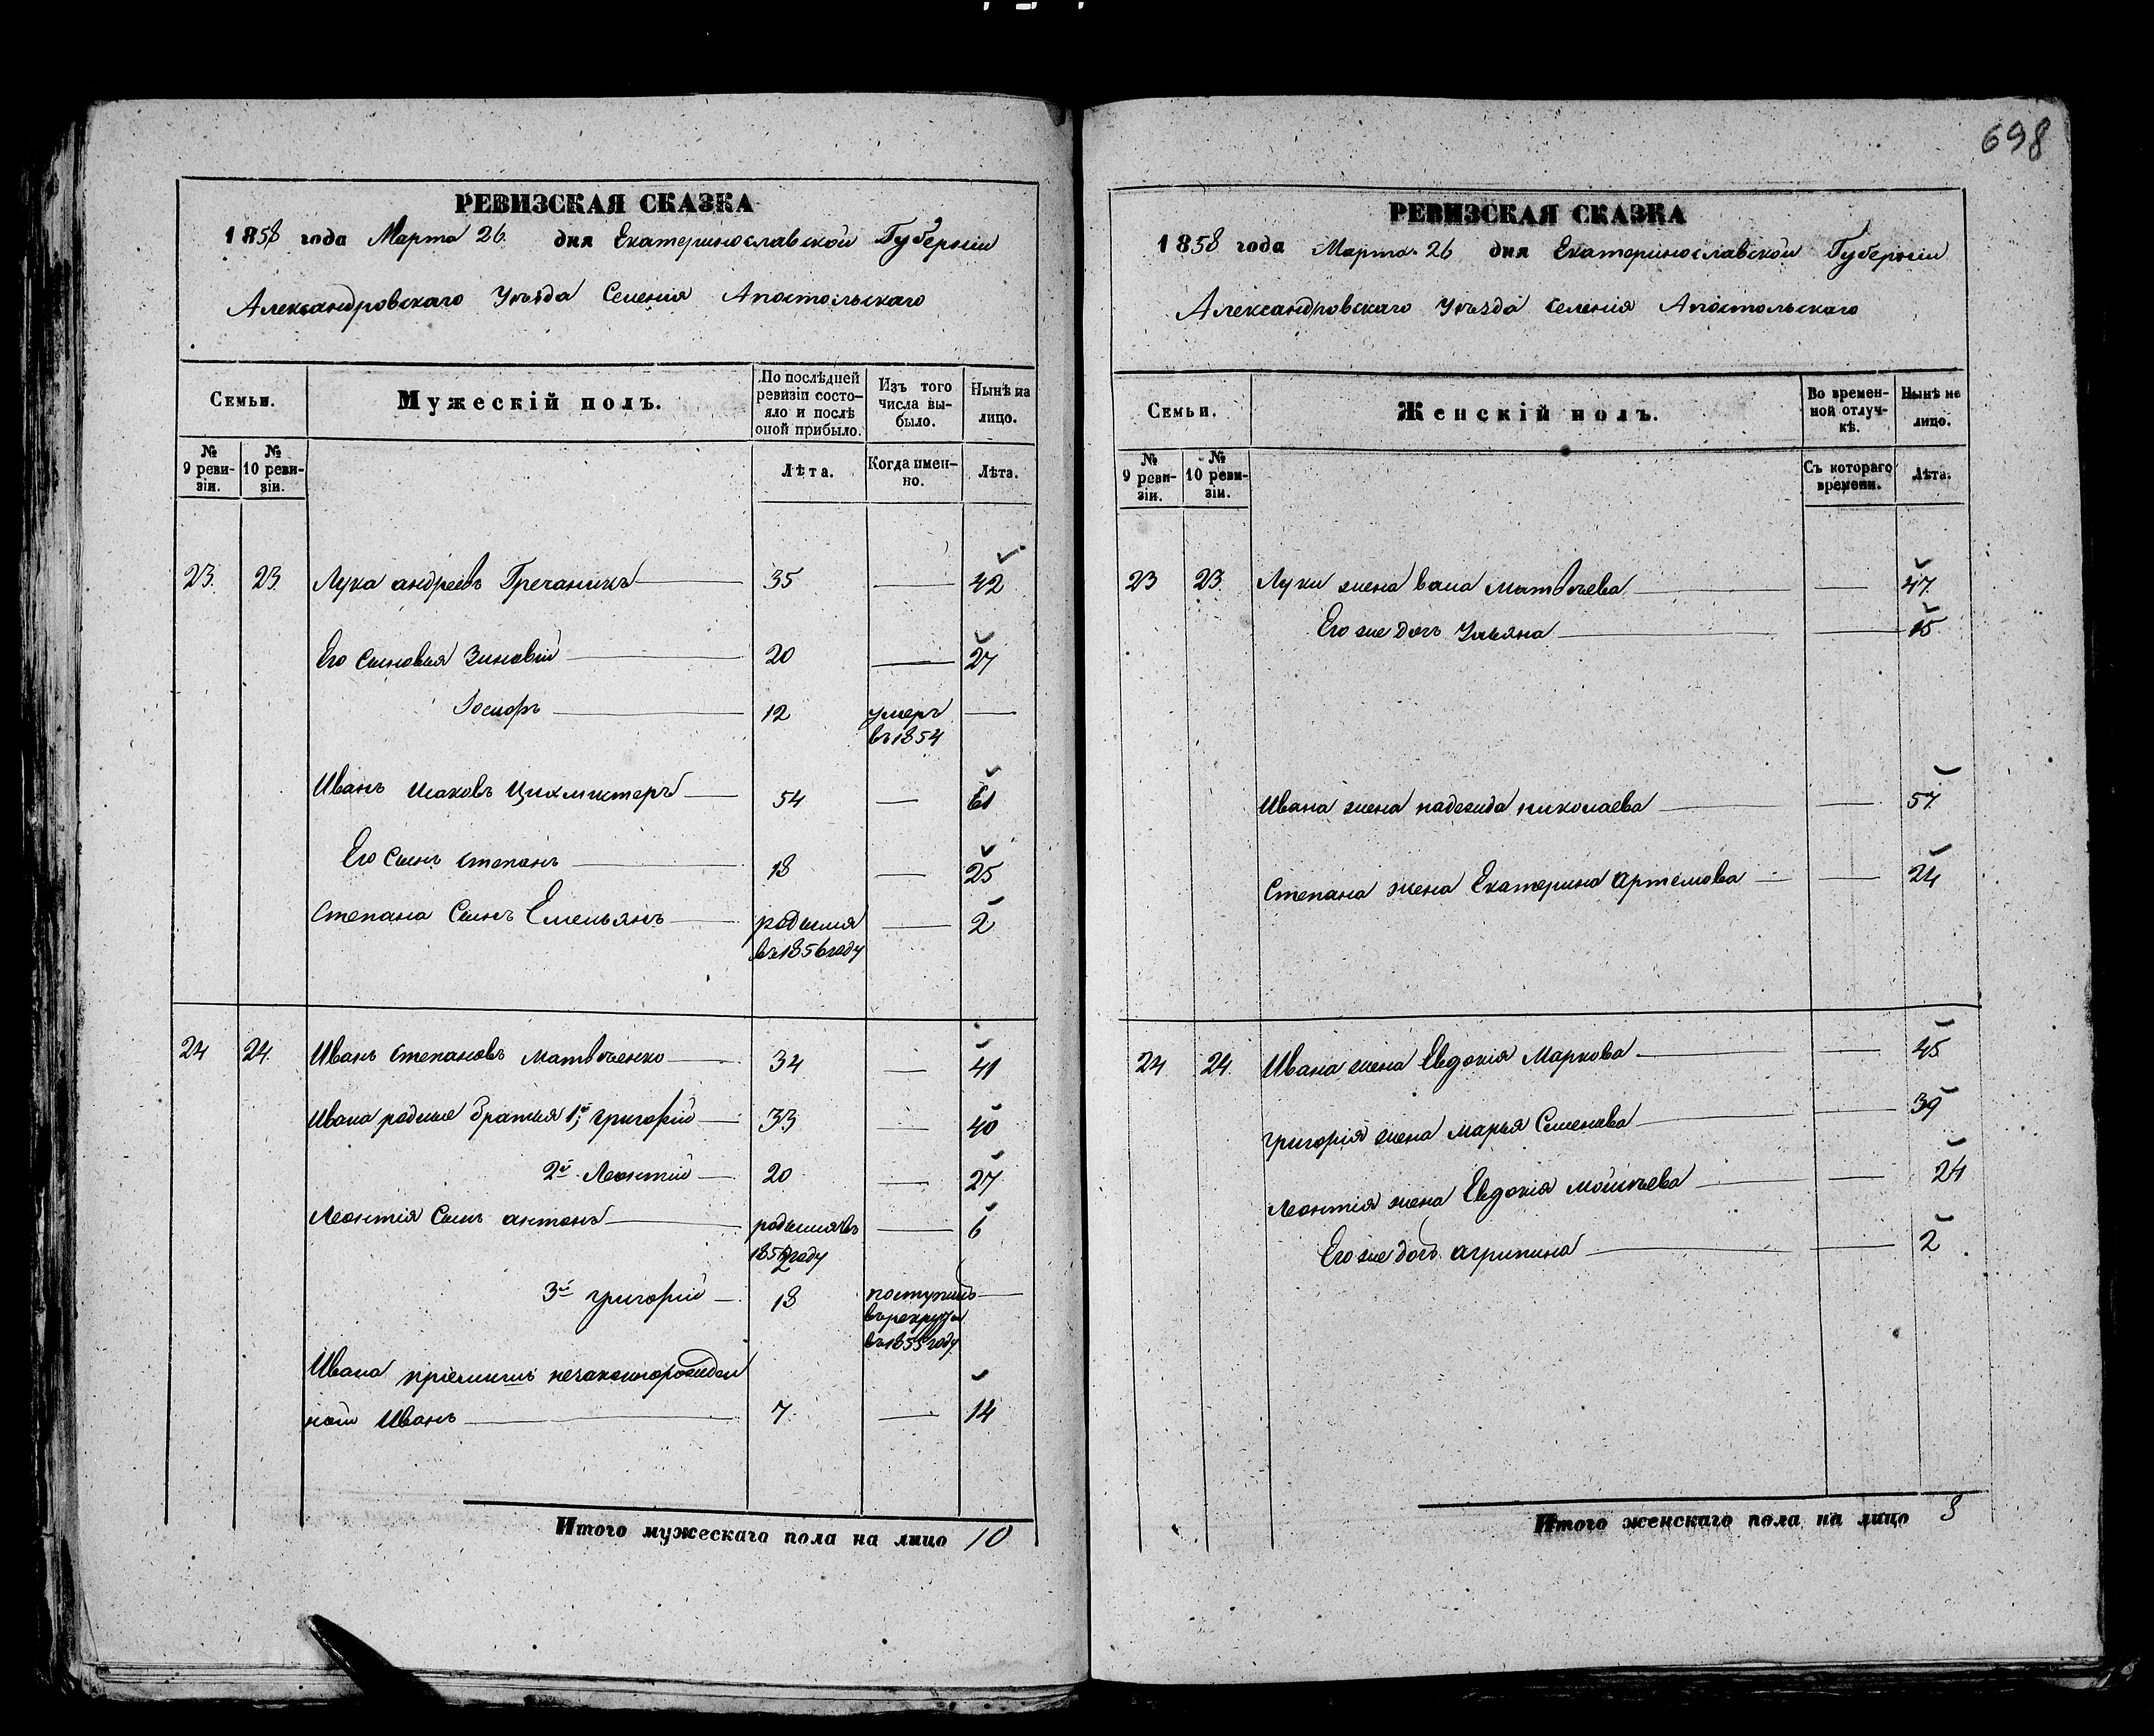 698
РЕВИЗСКАЯ СКАЗКА
1858 года Марта 26. дня Екатеринославской Губерніи
Александровскаго Уѣзда Селенія Апостольскаго
Семьи.
Мужескій полъ.
По послѣдней ревизіи состояло и послѣ оной прибыло.
Изъ того числа выбыло.
Нынѣ на лицо.
№ 9 ревизіи.
№ 10 ревизіи.
Лѣта.
Когда именно.
Лѣта.
23. 23. Лука андреевъ Гречаникъ 35 — 42
Его Сыновья Зиновій 20 — 27
Іосифъ 12 умеръ —
въ 1854
Иванъ Исаковъ Цихмистеръ 54 — 61
Его Сынъ степанъ 18 — 25
Степана Сынъ Емельянъ родился — 2
въ 1856 году
24 24. Иванъ степановъ матвѣенко 34 — 41
Ивана родные братья 1й григорій 33 — 40
2й Леонтій 20 — 27
Леонтія Сынъ антонъ родился въ — 6
1852 году
3й григорій 18 поступилъ —
въ рекруты
въ 1855 году
Ивана пріемышъ незаконорожден
ной Иванъ 7 — 14
Итого мужескаго пола на лицо 10
РЕВИЗСКАЯ СКАЗКА
1858 года Марта 26 дня Екатеринославской Губерніи
Александровскаго Уѣзда Селенія Апостольскаго
Семьи.
Женскій полъ.
Во временной отлучкѣ.
Нынѣ на лицо.
№ 9 ревизіи.
№ 10 ревизіи.
Съ котораго времени.
Лѣта.
23 23. Луки жена васа матвѣева — 47.
Его же дочь Ульяна — 15
Ивана жена надежда николаева — 57.
Степана жена Екатерина артемова — 24
24 24. Ивана жена Евдокія Маркова — 45
григорія жена марья Семенова — 39
Леонтія жена Евдокія моисѣева — 24
Его же дочь агрипина — 2
Итого женскаго пола на лицо 8